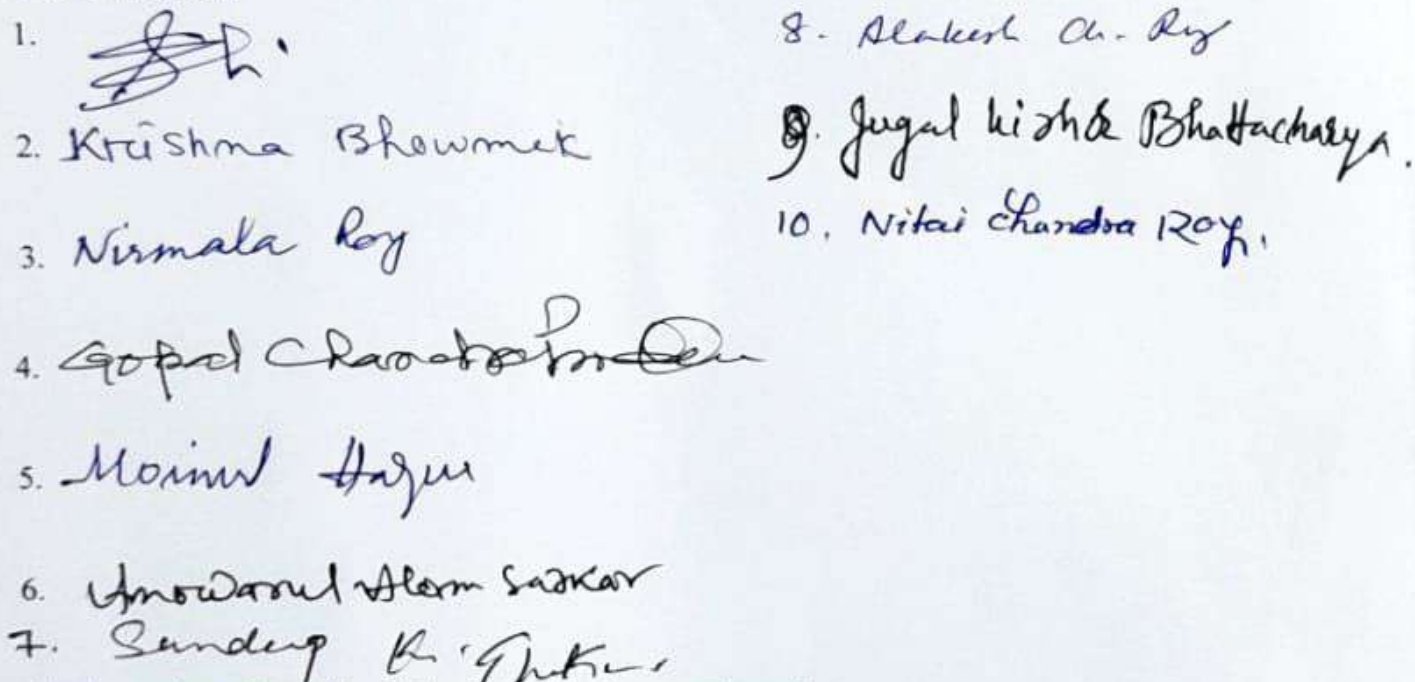 1.
2. Krishna Bhowmik
3. Nirmala Roy
4. Gopal Chandra
5. Moinul Haque
6. Anowarul Alam Sarkar
7. Sandeep Kr.
8. Alakesh Ch. Roy
9. Jugal kishor Bhattacharya.
10. Nitai Chandra Roy.